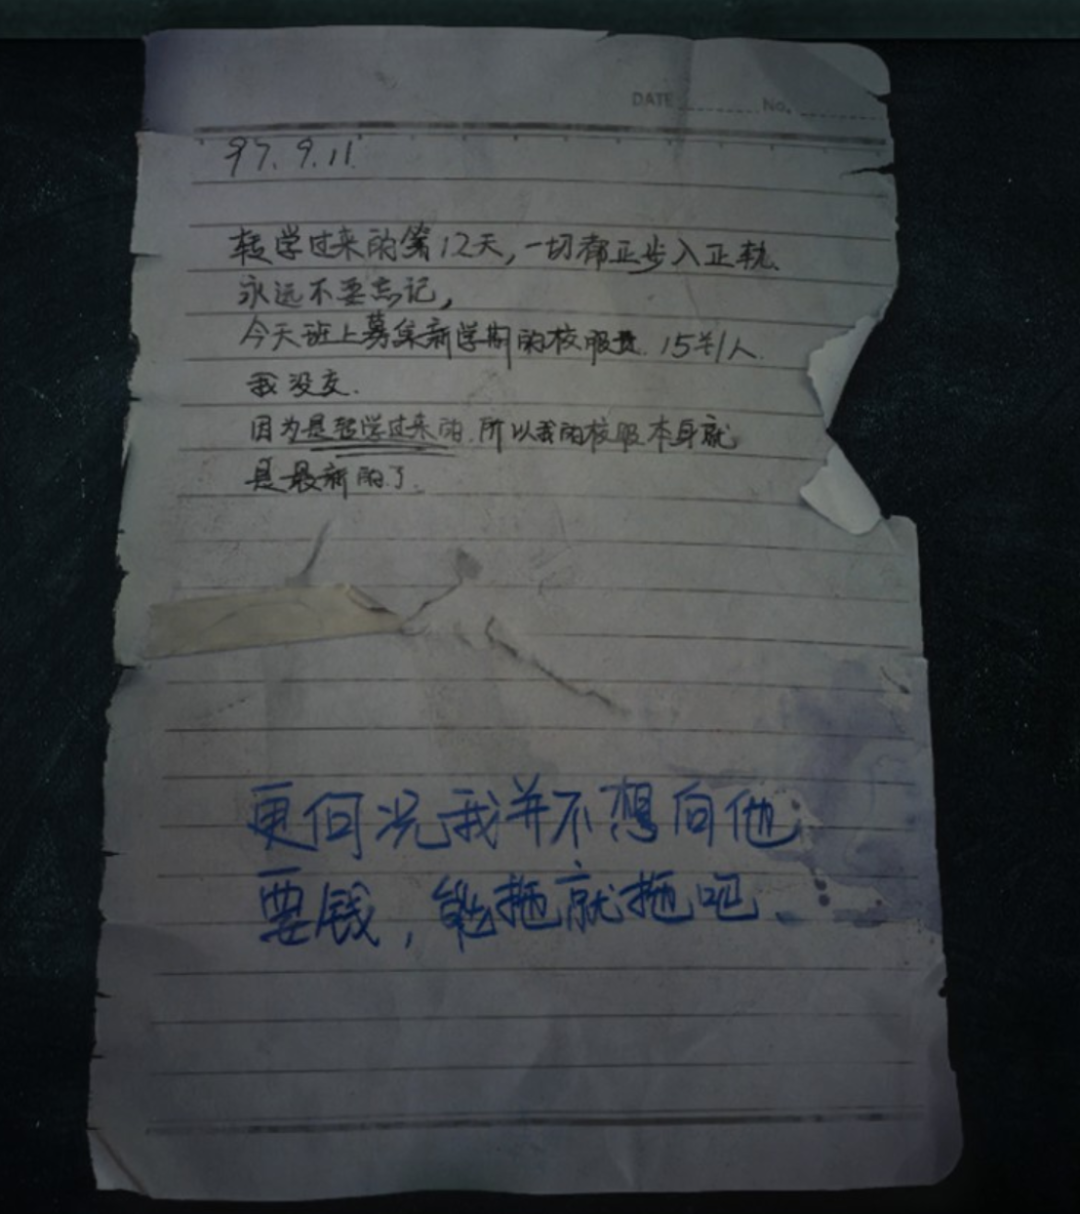 DATE No.
97.9.11.
转学过来的第12天,一切都正步入正轨.
永远不要忘记,
今天班上募集新学期的校服费.15羊/人.
我没交.
因为是转学过来的.所以我的校服本身就
是最新的了.
更何况我并不想向他
要钱,能拖就拖吧.